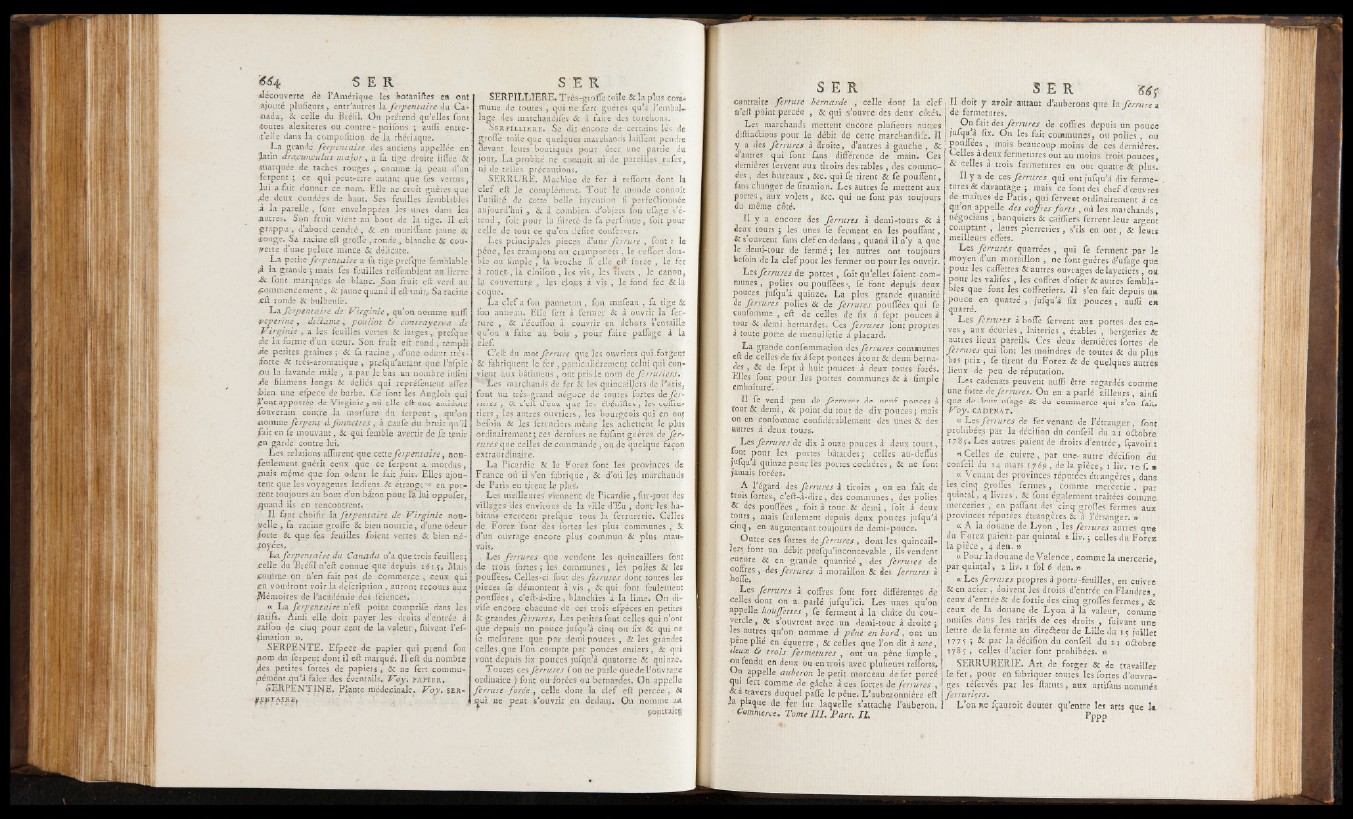 664 S E R
découverte de l'Amérique les botanistes en ont
ajouté plusieurs, entr'autres la serpentaire du Ca-
nada, & celle du Brésil. On prétend qu'elles sont
toutes alexiteres ou contre-poisons ; aussi entre-
t'elle dans la composition de la thériaque.
La grande serpentaire des anciens appellée en
latin dracunculus major, a sa tige droite lissée &
marquée de taches rouges, comme la peau d'un
serpent ; ce qui peut-être autant que ses vertus,
lui a fait donner ce nom. Elle ne croît guères que
de deux coudées de haut. Ses feuilles semblables
à la parelle, sont enveloppées les unes dans les
autres. Son fruit vient au bout de la tige. Il est
grappu, d'abord cendré, & en mûrissant jaune &
rouge. Sa racine est grosse, ronde, blanche & cou-
verte d'une pelure mince & délicate.
La petite serpentaire a sa tige presque semblable
à la grande ; mais ses feuilles ressemblent au lierre
& sont marquées de blanc. Son fruit est verd au
commencement, & jaune quand il est mûr. Sa racine
est ronde & bulbeuse.
La serpentaire de Virginie, qu'on nomme aussi
viperine, dictame, pouliot & contrayerva de
Virginie, a les feuilles vertes & larges, presque
de la forme d'un cœur. Son fruit est rond, rempli
de petites graines ; & sa racine, d'une odeur très-
forte & très-aromatique, presqu'autant que l'aspic
ou la lavande mâle, a par le bas un nombre infini
de filamens longs & déliés qui représentent assez
bien une espece de barbe. Ce sont les Anglois qui
l'ont apportée de Virginie, où elle est une antidote
souverain contre la morsure du serpent, qu'on
nomme serpent à sonnettes, à cause du bruit qu'il
fait en se mouvant, & qui semble avertir de se tenir
en garde contre lui.
Les relations assurent que cette serpentaire, non-
seulement guérit ceux que ce serpent a mordus,
mais même que son odeur le fait fuir. Elles ajou-
tent que les voyageurs Indiens & étrangers en por-
tent toujours au bout d'un bâton pour la lui opposer,
quand ils en rencontrent.
Il faut choisir la serpentaire de Virginie nou-
velle, sa racine grosse & bien nourrie, d'une odeur
forte & que ses feuilles soient vertes & bien né-
toyées.
La serpentaire du Canada n'a que trois feuilles ;
celle du Brésil n'est connue que depuis 1615. Mais
comme on n'en fait pas de commerce, ceux qui
en voudront voir la description, auront recours aux
Mémoires de l'académie des sciences.
« La serpentaire n'est point comprise dans les
tarifs. Ainsi elle doit payer les droits d'entrée à
raison de cinq pour cent de la valeur, suivant l'es-
timation ».
SERPENTE. Espece de papier qui prend son
nom du serpent dont il est marqué. Il est du nombre
des petites sortes de papiers, & ne sert commu-
nément qu'à faire des éventails. Voy. PAPIER.
SERPENTINE. Plante médecinale. Voy. SER-
PENTAIRE.
S E R
SERPILLIERE. Très-grosse toile & la plus com-
mune de toutes, qui ne sert guères qu'à l'embal-
lage des marchandises & à faire des torchons.
SERPILLIERE. Se dit encore de certains lés de
grosse toile que quelques marchands laissent pendre
devant leurs boutiques pour ôter une partie du
jour. La probité ne connoît ni de pareilles ruses,
ni de telles précautions.
SERRURE. Machine de fer à ressorts dont la
clef est le complément. Tout le monde connoît
l'utilité de cette belle invention si perfectionnée
aujourd'hui, & à combien d'objets son usage s'é-
tend, soit pour la sûreté de sa personne, soit pour
celle de tout ce qu'on desire conserver.
Les principales pieces d'une serrure, sont : le
pêne, les crampons ou cramponets, le ressort dou-
ble ou simple, la broche si elle est forée, le fer
à rouet, la cloison, les vis, les rivets, le canon,
la couverture, les clous à vis, le fond sec & la
coque.
La clef a son panneton, son museau, sa tige &
son anneau. Elle sert à fermer & à ouvrir la ser-
rure, & l'écusson à couvrir en dehors l'entaille
qu'on a faite au bois, pour faire passage à la
clef.
C'est du mot serrure que les ouvriers qui forgent
& fabriquent le fer, particulièrement celui qui con-
vient aux bâtimens, ont pris le nom de serruriers.
Les marchands de fer & les quincaillers de Paris,
font un très-grand négoce de toutes sortes de ser-
rures, & c'est d'eux que les ébénistes, les coffre-
tiers, les autres ouvriers, les bourgeois qui en ont
besoin & les serruriers même les achettent le plus
ordinairement ; ces derniers ne faisant guères de ser-
rures que celles de commande, ou de quelque façon
extraordinaire.
La Picardie & le Forez sont les provinces de
France où il s'en fabrique, & d'où les marchands
de Paris en tirent le plus.
Les meilleures viennent de Picardie, sur-tout des
villages des environs de la ville d'Eu, dont les ha-
bitans exercent presque tous la serrurerie. Celles
de Forez sont des sortes les plus communes, &
d'un ouvrage encore plus commun & plus mau-
vais.
Les serrures que vendent les quincaillers sont
de trois sortes ; les communes, les polies & les
poussées. Celles-ci sont des serrures dont toutes les
pieces se démontent à vis, & qui sont seulement
poussées, c'est-à-dire, blanchies à la lime. On di-
vise encore chacune de ces trois especes en petites
& grandes serrures. Les petites sont celles qui n'ont
que depuis un pouce jusqu'à cinq ou six & qui ne
se mesurent que par demi pouces, & les grandes
celles que l'on compte par pouces entiers, & qui
vont depuis six pouces jusqu'à quatorze & quinze.
Toutes ces serrures (on ne parle que de l'ouvrage
ordinaire) sont ou forées ou bernardes. On appelle
serrure forée, celle dont la clef est percée, &
qui ne peut s'ouvrir en dedans. On nomme au
contraire
S E R
contraire serrure bernarde, celle dont la clef
n'est point percée, & qui s'ouvre des deux côtés.
Les marchands mettent encore plusieurs autres
distinctions pour le débit de cette marchandise. Il
y a des serrures à droite, d'autres à gauche, &
d'autres qui sont sans différence de main. Ces
dernières servent aux tiroirs des tables, des commo-
des, des bureaux, &c. qui se tirent & se poussent,
sans changer de situation. Les autres se mettent aux
portes, aux volets, &c. qui ne sont pas toujours
du même côté.
Il y a encore des serrures à demi-tours & à
deux tours ; les unes se ferment en les poussant,
& s'ouvrent sans clef en dedans, quand il n'y a que
le demi-tour de fermé ; les autres ont toujours
besoin de la clef pour les fermer ou pour les ouvrir.
Les serrures de portes, soit qu'elles soient com-
munes, polies ou poussées, se font depuis deux
pouces jusqu'à quinze. La plus grande quantité
de serrures polies & de serrures poussées qui se
consomme, est de celles de six à sept pouces à
tour & demi bernardes. Ces serrures sont propres
à toute porte de menuiserie à placard.
La grande consommation des serrures communes
est de celles de six à sept pouces à tour & demi berna-
des, & de sept à huit pouces à deux tours forés.
Elles sont pour les portes communes & à simple
emboiture.
Il se vend peu de serrures de neuf pouces à
tout & demi, & point du tout de dix pouces ; mais
on en consomme considérablement des unes & des
autres à deux tours.
Les serrures de dix à onze pouces à deux tours,
sont pour les portes bâtardes ; celles au-dessus
jusqu'à quinze pour les portes cochères, & ne sont
jamais forées.
A l'égard des serrures à tiroirs, on en fait de
trois sortes, c'est-à-dire, des communes, des polies
& des poussées, soit à tour & demi, soit à deux
tours, mais seulement depuis deux pouces jusqu'à
cinq, en augmentant toujours de demi-pouce.
Outre ces sortes de serrures, dont les quincail-
lers font un débit presqu'inconcevable, ils vendent
encore & en grande quantité, des serrures de
coffres, des serrures à moraillon & des serrures à
bosse.
Les serrures à coffres sont fort différentes de
celles dont on a parlé jusqu'ici. Les unes qu'on
appelle houssettes, se ferment à la chûte du cou-
vercle, & s'ouvrent avec un demi-tour à droite ;
les autres qu'on nomme à pêne en bord, ont un
pêne plié en équerre, & celles que l'on dit à une,
deux & trois fermetures, ont un pêne simple,
ou fendu en deux ou en trois avec plusieurs ressorts.
On appelle auberon le petit morceau de fer percé
qui sert comme de gâche à ces sortes de serrures,
& à travers duquel passe le pêne. L'auberonnière est
la plaque de fer sur laquelle s'attache l'auberon.
Commerce. Tome III. Part. II.
S E R 665
Il doit y avoir autant d'auberons que la serrure a
de fermetures.
On fait des serrures de coffres depuis un pouce
jusqu'à six. On les fait communes, ou polies, ou
poussées, mais beaucoup moins de ces dernières.
Celles à deux fermetures ont au moins trois pouces,
& celles à trois fermetures en ont quatre & plus.
Il y a de ces serrures qui ont jusqu'à dix ferme-
tures & davantage ; mais ce sont des chef d'œuvres
de maîtres de Paris, qui servent ordinairement à ce
qu'on appelle des coffres forts, où les marchands,
négocians, banquiers & caissiers serrent leur argent
comptant, leurs pierreries, s'ils en ont, & leurs
meilleurs effets.
Les serrures quarrées, qui se ferment par le
moyen d'un moraillon, ne sont guères d'usage que
pour les cassettes & autres ouvrages de layetiers, ou
pour les valises, les coffres d'osier & autres sembla-
bles que font les coffretiers. Il s'en fait depuis un
pouce en quarré, jusqu'à six pouces, aussi en
quarré.
Les serrures à bosse servent aux portes des ca-
ves, aux écuries, laiteries, étables, bergeries &
autres lieux pareils. Ces deux dernières sortes de
serrures qui sont les moindres de toutes & du plus
bas prix, se tirent du Forez & de quelques autres
lieux de peu de réputation.
Les cadenats peuvent aussi être regardés comme
une sorte de serrures. On en a parlé ailleurs, ainsi
que de leur usage & du commerce qui s'en fait.
Voy. CADENAT.
« Les serrures de fer venant de l'étranger, sont
prohibées par la décision du conseil du 21 octobre
1785. Les autres paient de droits d'entrée, sçavoir :
« Celles de cuivre, par une autre décision du
conseil du 14 mars 1769, de la pièce, 1 liv. 10 s. »
« Venant des provinces réputées étrangères, dans
les cinq grosses fermes, comme mercerie, par
quintal, 4 livres, & sont également traitées comme
merceries, en passant des cinq grosses fermes aux
provinces réputées étrangères & à l'étranger. »
« A la douane de Lyon, les serrures autres que
du Forez paient par quintal 1 liv. ; celles du Forez
la pièce, 4 den. »
« Pour la douane de Valence, comme la mercerie,
par quintal, 2 liv. 1 sol 6 den. »
« Les serrures propres à porte-feuilles, en cuivre
& en acier, doivent les droits d'entrée en Flandres,
ceux d'entrée & de sortie des cinq grosses fermes, &
ceux de la douane de Lyon à la valeur, comme
omises dans les tarifs de ces droits, suivant une
lettre de la ferme au directeur de Lille du 15 juillet
1775 ; & par la décision du conseil du 21 octobre
1785, celles d'acier sont prohibées. »
SERRURERIE. Art de forger & de travailler
le fer, pour en fabriquer toutes les sortes d'ouvra-
ges réservés par les statuts, aux artisans nommés
serruriers.
L'on ne sçauroit douter qu'entre les arts que la
Pppp